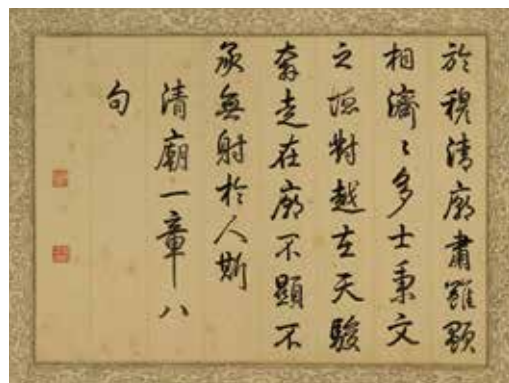 於穆清廟肅雝顯
相濟〻多士秉文
之德對越在天駿
奔走在廟不顯不
承無射於人斯
清廟一章八
句